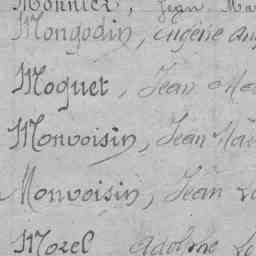 Monnier, Jean Ma
Mongodin, Eugène Au
Moquet, Jean Ma
Monvoisin, Jean Ma
Monvoisin, Jean
Morel Adolphe Le